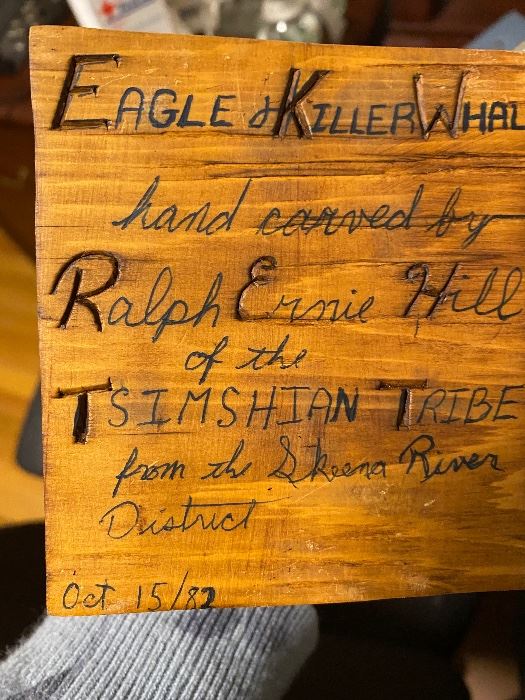 EAGLE & KILLER WHAL
hand carved by
Ralph Ernie Hill
of the
TSIMSHIAN TRIBE
from the Skeena River
District
Oct 15/82